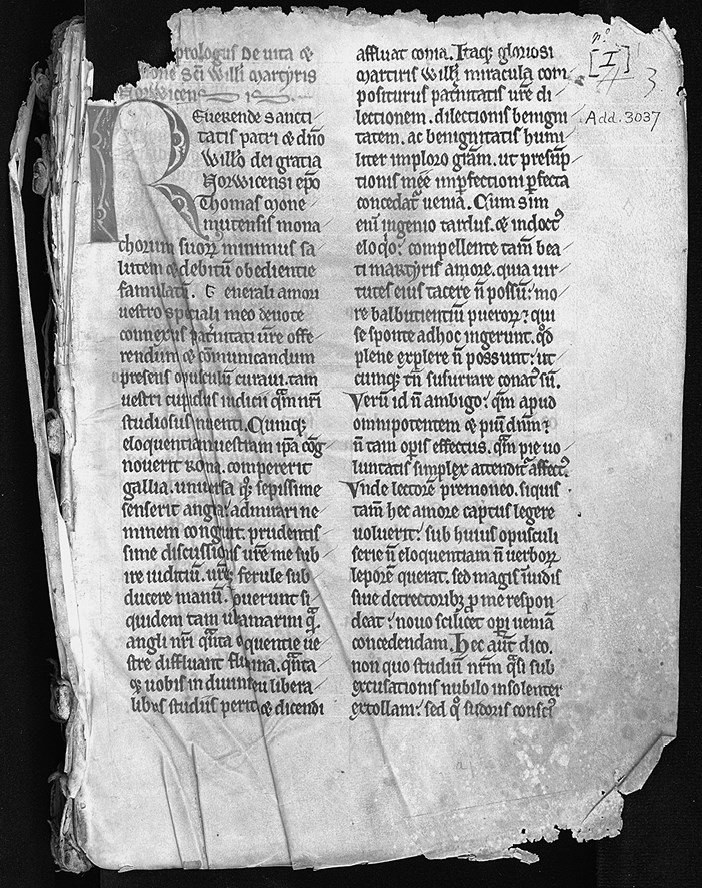 prologus de uita ⁊
one sc̄i Willi martyris
Norwicen
REuerende sancti
tatis patri ⁊ dn̄o
Willo dei gratia
Norwicensi ep̄o
Thomas mone
mutensis mona
chorum suoꝝ minimus sa
lutem ⁊ debitū obedientie
famulatū. Generali amori
uestro speciali meo deuote
connexus pat̄nitati ur̄e offe
rendum ⁊ cōmunicandum
presens opusculū curaui. tam
uestri cupidus iudicii q̄m nr̄i
studiosus nuenti. Cumqꝫ
eloquentiam uestram ip̄a cog
nouerit roma. compererit
gallia. uniuersa qꝫ sepissime
senserit angłia. admirari ne
minem congruit. prudentis
sime discussionis ur̄e me sub
ire iuditiū. ur̄eqꝫ ferule sub
ducere manū. Nouerunt si
quidem tam ulamarini q̄
angli nr̄i q̄nta eloquentie ue
stre diffluant flumina. q̄nta
qꝫ uobis in diuinis seu libera
libus studiis peritia ⁊ dicendi
affluat copia. Itaqꝫ gloriosi
martiris Willi miracula com
positurus pat̄nitatis ur̄e di
lectionem. dilectionis benigni
tatem. ac benignitatis humi
liter imploro gr̄am. ut presūp
tionis mee imp̱fectioni p̱fecta
concedat᷑ uenia. Cum sim
eni᷑ ingenio tardus. ⁊ indoct᷒
eloqͦ: compellente tam̄ bea
ti martyris amore. quia uir
tutes eius tacere n̄ possū: mo
re balbutientiū pueroꝝ: qui
se sponte ad hoc ingerunt. qd̄
plene explere n̄ possunt: ut
cumqꝫ tn̄ susurrare conat᷑ sū.
Verū id n̄ ambigo: q̄m apud
omnipotentem ⁊ piū dn̄m:
n̄ tam op̱is effectus. q̄m pie uo
luntatis simplex attendit᷑ affect᷒.
Vnde lectorē premoneo. siquis
tam̄ hec amore captus legere
uoluerit: sub huius opusculi
serie n̄ eloquentiam n̄ uerboꝝ
leporē querat. sed magis īuidis
siue detrectoribꝫ ꝓ me respon
deat: nouo scilicet op̱i ueniā
concedendam. Hec aut̄ dico.
non quo studiū nr̄m q̄si sub
excusationis nubilo insolenter
extollam: sed qͦ sudoris consci᷒
nº
[I]
3
Add. 3037